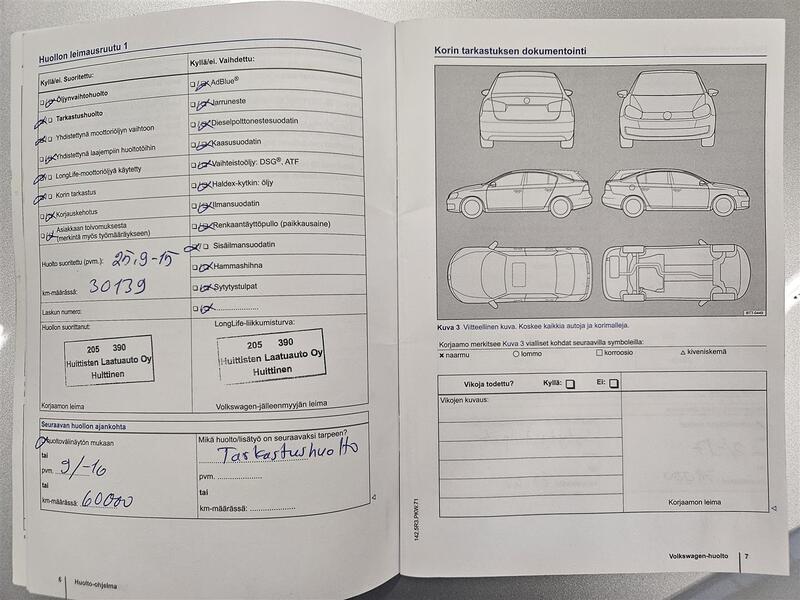 Huollon leimausruutu 1
Kyllä/ei. Suoritettu:
Öljynvaihtohuolto
Tarkastushuolto
Yhdistettynä moottoriöljyn vaihtoon
Yhdistettynä laajempiin huoltotöihin
LongLife-moottoriöljyä käytetty
Korin tarkastus
Korjauskehotus
Asiakkaan toivomuksesta
(merkintä myös työmääräykseen)
Huolto suoritettu (pvm.): 25.9-15
km-määrässä: 30139
Laskun numero:
Huollon suorittanut:
205 390
Huittisten Laatuauto Oy
Huittinen
Korjaamon leima
Kyllä/ei. Vaihdettu:
AdBlue®
Jarruneste
Dieselpolttonestesuodatin
Kaasusuodatin
Vaihteistoöljy: DSG®, ATF
Haldex-kytkin: öljy
Ilmansuodatin
Renkaantäyttöpullo (paikkausaine)
Sisäilmansuodatin
Hammashihna
Sytytystulpat
LongLife-liikkumisturva:
205 390
Huittisten Laatuauto Oy
Huittinen
Volkswagen-jälleenmyyjän leima
Seuraavan huollon ajankohta
Huoltovälinäytön mukaan
tai
pvm. 9/-16
tai
km-määrässä: 60000
Mikä huolto/lisätyö on seuraavaksi tarpeen?
Tarkastushuolto
pvm. ....................
tai
km-määrässä: ....................
6 Huolto-ohjelma
Korin tarkastuksen dokumentointi
Kuva 3 Viitteellinen kuva. Koskee kaikkia autoja ja korimalleja.
Korjaamo merkitsee Kuva 3 vialliset kohdat seuraavilla symboleilla:
× naarmu ○ lommo □ korroosio △ kiveniskemä
Vikoja todettu? Kyllä: Ei:
Vikojen kuvaus:
Korjaamon leima
142.5R3.PKW.71
Volkswagen-huolto 7